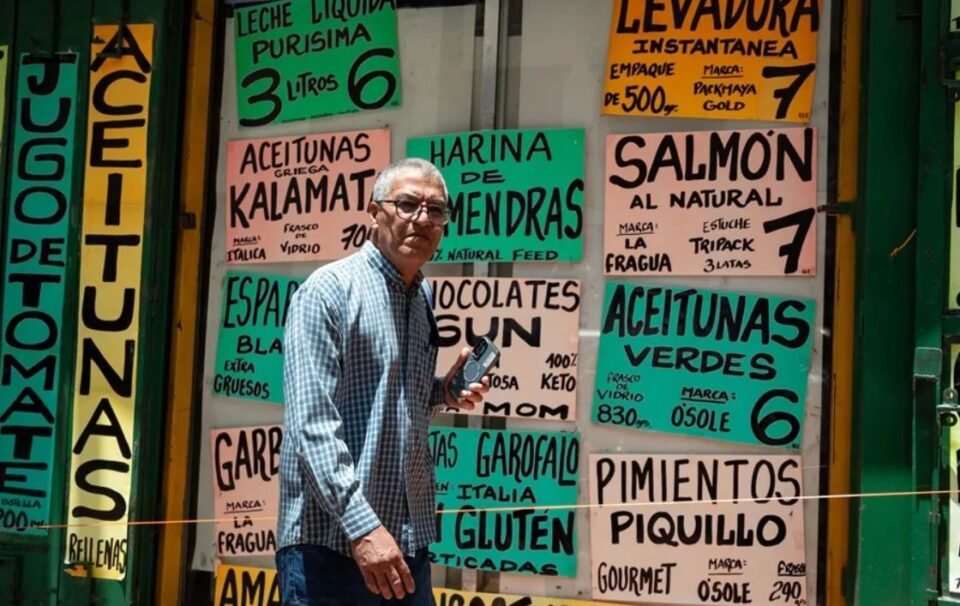 JUGO DE TOMATE
BOTELLA
ACEITUNAS
RELLENAS
LECHE LÍQUIDA
PURISIMA
3 LITROS 6
ACEITUNAS
GRIEGA
KALAMAT
MARCA:
ITALICA
FRASCO
DE
VIDRIO
70
ESPA
BLA
EXTRA
GRUESOS
GARB
MARCA:
LA
FRAGUA
AMA
HARINA
DE
MENDRAS
NATURAL FEED
HOCOLATES
GUN
100%
TOSA KETO
MOM
TAS GAROFALO
ITALIA
GLUTÉN
TICADAS
LEVADURA
INSTANTANEA
EMPAQUE
DE 500gr.
MARCA:
PACKMAYA
GOLD
7
SALMÓN
AL NATURAL
MARCA:
LA
FRAGUA
ESTUCHE
TRIPACK
3 LATAS
7
ACEITUNAS
VERDES
FRASCO
DE
VIDRIO
830gr.
MARCA:
O'SOLE
6
PIMIENTOS
PIQUILLO
GOURMET
MARCA:
O'SOLE
FRASCO